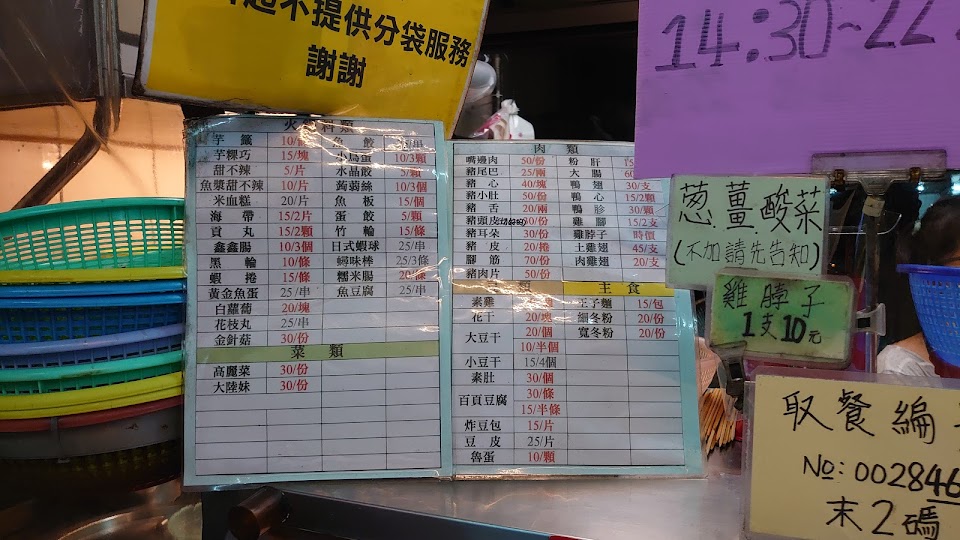 不提供分袋服務
謝謝
14:30~22:
火 料類
芋籤 10/ 魚餃
芋粿巧 15/塊 小鳥蛋 10/3顆
甜不辣 5/片 水晶餃 5/顆
魚漿甜不辣 10/片 蒟蒻絲 10/3個
米血糕 20/片 魚板 15/個
海帶 15/2片 蛋餃 5/顆
貢丸 15/2顆 竹輪 15/條
鑫鑫腸 10/3個 日式蝦球 25/串
黑輪 10/條 鱘味棒 25/3條
蝦捲 15/條 糯米腸 20/條
黃金魚蛋 25/串 魚豆腐 25/串
白蘿蔔 20/塊
花枝丸 25/串
金針菇 30/份
菜類
高麗菜 30/份
大陸妹 30/份
肉類
嘴邊肉 50/份 粉肝
豬尾巴 25/兩 大腸
豬心 40/塊 鴨翅 30/支
豬小肚 50/份 鴨心 15/2顆
豬舌 20/兩 鴨胗 30/顆
豬頭皮 30/份 雞腳 15/2支
豬耳朵 30/份 雞脖子 時價
豬皮 20/捲 土雞翅 45/支
腳筋 70/份 肉雞翅 20/支
豬肉片 50/份
類 主食
素雞 10/ 王子麵 15/包
花干 20/塊 細冬粉 20/份
大豆干 20/個 寬冬粉 20/份
10/半個
小豆干 15/4個
素肚 30/個
百頁豆腐 30/條
15/半條
炸豆包 15/片
豆皮 25/片
魯蛋 10/顆
蔥薑酸菜
(不加請先告知)
雞脖子
1支10元
取餐編
No: 002846
末2碼